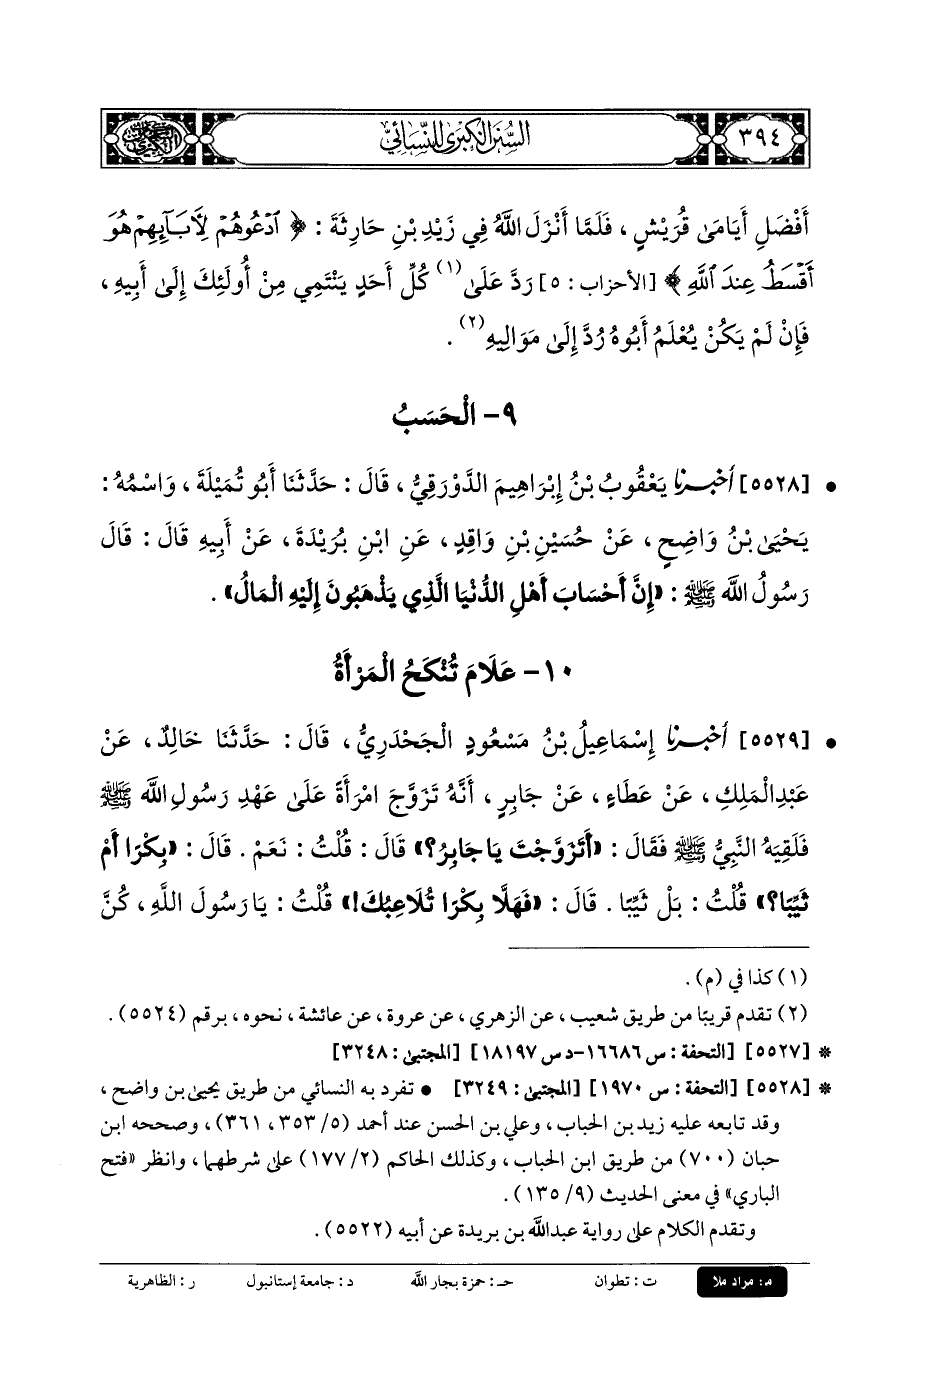 ٣٩٤
السُّنَنُ الْكُبْرَى لِلنِّسَائِيِّ
أَفْضَلِ أَيَامَىٰ قُرَيْشٍ ، فَلَمَّا أَنْزَلَ اللَّهُ فِي زَيْدِ بْنِ حَارِثَةَ : ﴿ ٱدْعُوهُمْ لِأَبَآيِهِمْ هُوَ
أَقْسَطُ عِندَ ٱللَّهِ ﴾ [الأحزاب : ٥] رَدَّ عَلَىٰ (١) كُلِّ أَحَدٍ يَنْتَمِي مِنْ أُولَئِكَ إِلَىٰ أَبِيهِ ،
فَإِنْ لَمْ يَكُنْ يُعْلَمُ أَبُوهُ رُدَّ إِلَىٰ مَوَالِيهِ (٢) .
٩- الْحَسَبُ
• [٥٥٢٨] أخبرنا يَعْقُوبُ بْنُ إِبْرَاهِيمَ الدَّوْرَقِيُّ ، قَالَ : حَدَّثَنَا أَبُو تُمَيْلَةَ ، وَاسْمُهُ :
يَحْيَىٰ بْنُ وَاضِحٍ ، عَنْ حُسَيْنِ بْنِ وَاقِدٍ ، عَنِ ابْنِ بُرَيْدَةَ ، عَنْ أَبِيهِ قَالَ : قَالَ
رَسُولُ اللَّه ﷺ : «إِنَّ أَحْسَابَ أَهْلِ الدُّنْيَا الَّذِي يَذْهَبُونَ إِلَيْهِ الْمَالُ» .
١٠- عَلَامَ تُنْكَحُ الْمَرْأَةُ
• [٥٥٢٩] أخبرنا إِسْمَاعِيلُ بْنُ مَسْعُودٍ الْجَحْدَرِيُّ ، قَالَ : حَدَّثَنَا خَالِدٌ ، عَنْ
عَبْدِ الْمَلِكِ ، عَنْ عَطَاءٍ ، عَنْ جَابِرٍ ، أَنَّهُ تَزَوَّجَ امْرَأَةً عَلَىٰ عَهْدِ رَسُولِ اللَّه ﷺ
فَلَقِيَهُ النَّبِيُّ ﷺ فَقَالَ : «أَتَزَوَّجْتَ يَا جَابِرُ؟» قَالَ : قُلْتُ : نَعَمْ . قَالَ : «بِكْرًا أَمْ
ثَيِّبًا؟» قُلْتُ : بَلْ ثَيِّبًا . قَالَ : «فَهَلَّا بِكْرًا تُلَاعِبُكَ!» قُلْتُ : يَا رَسُولَ اللَّهِ ، كُنَّ
(١) كذا في (م) .
(٢) تقدم قريبًا من طريق شعيب ، عن الزهري ، عن عروة ، عن عائشة ، نحوه ، برقم (٥٥٢٤) .
* [٥٥٢٧] [التحفة : س ١٦٦٨٦-د س ١٨١٩٧] [المجتبى : ٣٢٤٨]
* [٥٥٢٨] [التحفة : س ١٩٧٠] [المجتبى : ٣٢٤٩] • تفرد به النسائي من طريق يحيى بن واضح ،
وقد تابعه عليه زيد بن الحباب ، وعلي بن الحسن عند أحمد (٥/ ٣٥٣، ٣٦١) ، وصححه ابن
حبان (٧٠٠) من طريق ابن الحباب ، وكذلك الحاكم (٢/ ١٧٧) على شرطهما ، وانظر «فتح
الباري» في معنى الحديث (٩/ ١٣٥) .
وتقدم الكلام على رواية عبدالله بن بريدة عن أبيه (٥٥٢٢) .
م : مراد ملا ت : تطوان حـ : حمزة بجار الله د : جامعة إستانبول ر : الظاهرية